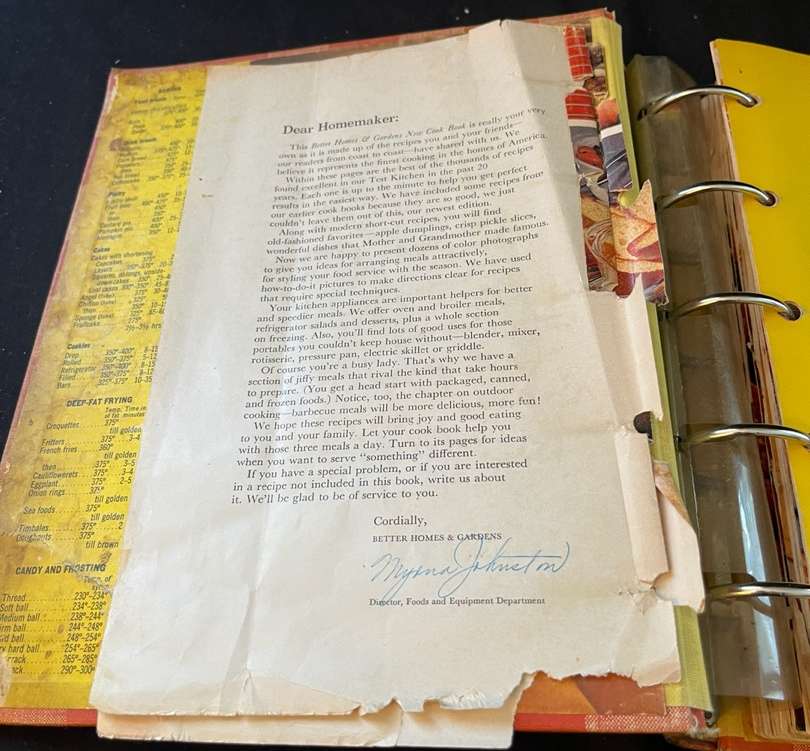 Dear Homemaker:
This Better Homes & Gardens New Cook Book is really your very
own as it is made up of the recipes you and your friends—
our readers from coast to coast—have shared with us. We
believe it represents the finest cooking in the homes of America.
Within these pages are the best of the thousands of recipes
found excellent in our Test Kitchen in the past 20
years. Each one is up to the minute to help you get perfect
results in the easiest way. We have included some recipes from
our earlier cook books because they are so good, we just
couldn't leave them out of this, our newest edition.
Along with modern short-cut recipes, you will find
old-fashioned favorites—apple dumplings, crisp pickle slices,
wonderful dishes that Mother and Grandmother made famous.
Now we are happy to present dozens of color photographs
to give you ideas for arranging meals attractively,
for styling your food service with the season. We have used
how-to-do-it pictures to make directions clear for recipes
that require special techniques.
Your kitchen appliances are important helpers for better
and speedier meals. We offer oven and broiler meals,
refrigerator salads and desserts, plus a whole section
on freezing. Also, you'll find lots of good uses for those
portables you couldn't keep house without—blender, mixer,
rotisserie, pressure pan, electric skillet or griddle.
Of course you're a busy lady. That's why we have a
section of jiffy meals that rival the kind that take hours
to prepare. (You get a head start with packaged, canned,
and frozen foods.) Notice, too, the chapter on outdoor
cooking—barbecue meals will be more delicious, more fun!
We hope these recipes will bring joy and good eating
to you and your family. Let your cook book help you
with those three meals a day. Turn to its pages for ideas
when you want to serve "something" different.
If you have a special problem, or if you are interested
in a recipe not included in this book, write us about
it. We'll be glad to be of service to you.
Cordially,
BETTER HOMES & GARDENS
Myrna Johnston
Director, Foods and Equipment Department
Cakes
Cakes with shortening
Cupcakes 375°
Layers 350°-375°
Angel
Fruitcake 275° 2½-3½ hrs
Cookies
Drop 350°-400° 8-1
Rolled 350°-375° 5-12
Refrigerator 350°-400° 8-15
Filled 350°-375° 8-12
Bars 325°-375° 10-35
DEEP-FAT FRYING
Temp. Time in
of fat minutes
Croquettes 375°
till golden
Fritters 375° 3-4
French fries 360°
till golden
then 375° 3-5
Cauliflowerets 375° 3-4
Eggplant 375° 2-5
Onion rings 375°
till golden
Sea foods 375°
till golden
Timbales 375° 2
Doughnuts 375°
till brown
CANDY AND FROSTING
Temp. of
Thread 230°-234°
Soft ball 234°-238°
Medium ball 238°-244°
irm ball 244°-248°
id ball 248°-254°
ry hard ball 254°-265°
rack 265°-285°
ck 290°-300°